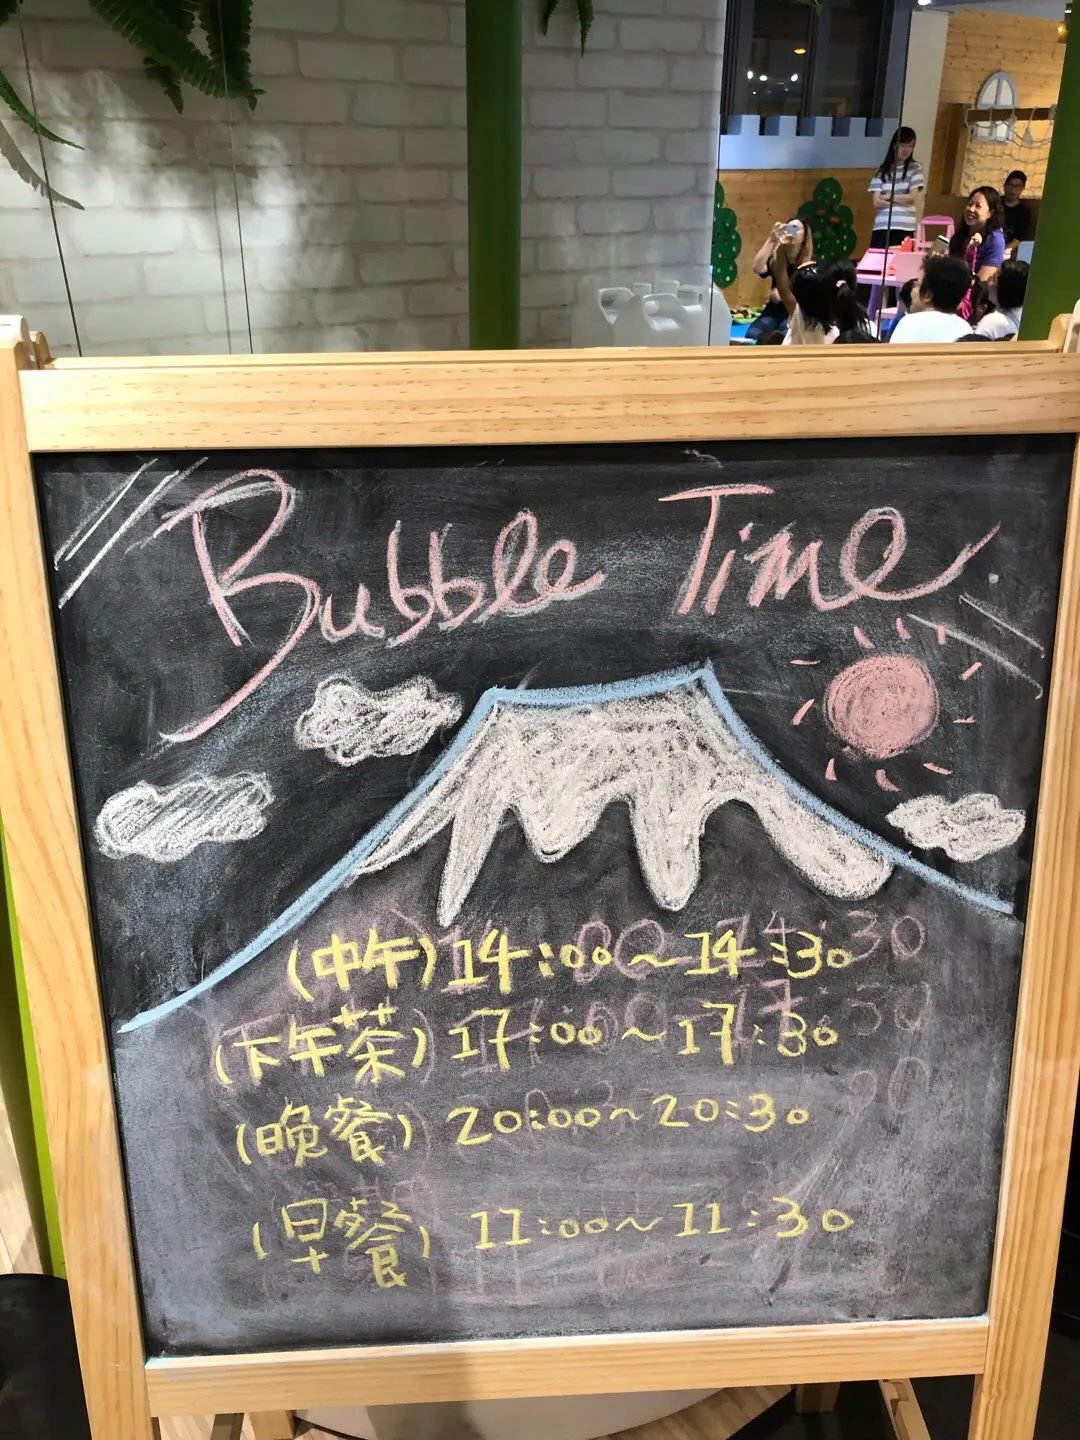 Bubble Time
(中午) 14:00~14:30
(下午茶) 17:00~17:30
(晚餐) 20:00~20:30
(早餐) 11:00~11:30